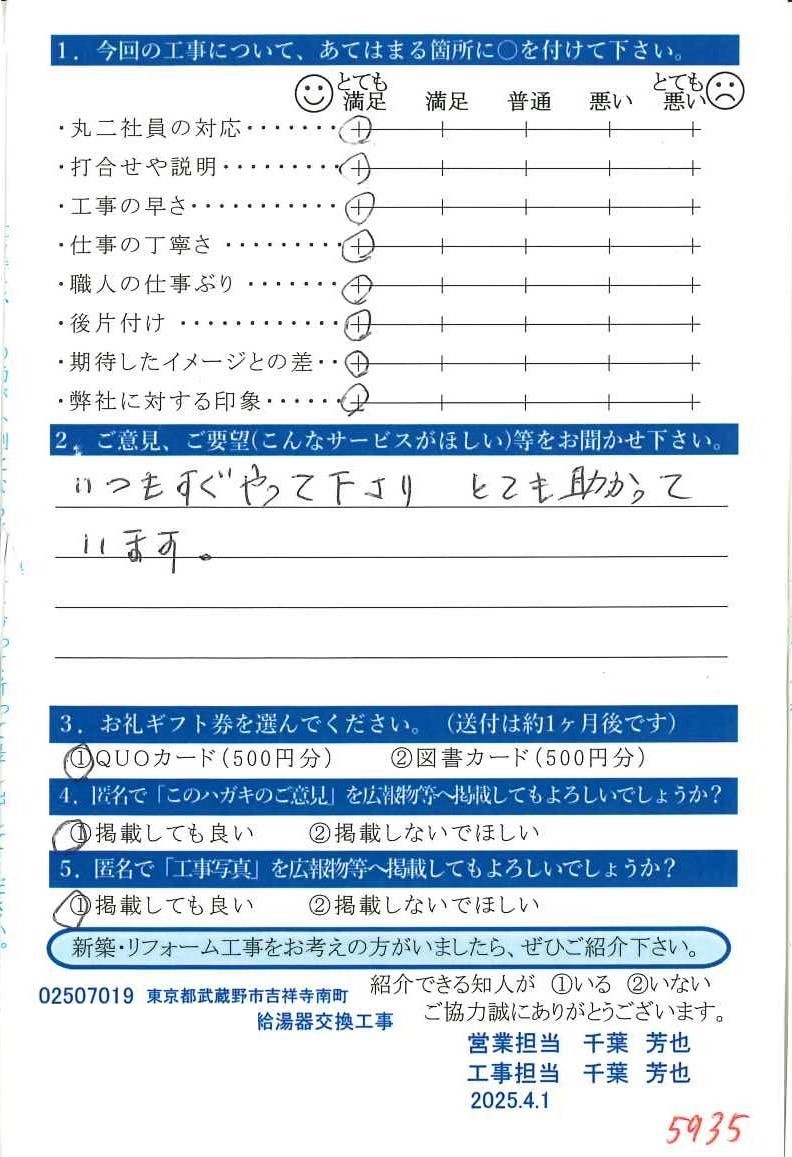 1．今回の工事について、あてはまる箇所に○を付けて下さい。
とても とても
満足 満足 普通 悪い 悪い
・丸二社員の対応・・・・・・・
・打合せや説明・・・・・・・・・
・工事の早さ・・・・・・・・・・・
・仕事の丁寧さ ・・・・・・・・・
・職人の仕事ぶり ・・・・・・・
・後片付け ・・・・・・・・・・・・
・期待したイメージとの差・・
・弊社に対する印象・・・・・・
2．ご意見、ご要望(こんなサービスがほしい)等をお聞かせ下さい。
いつもすぐやって下さり とても助かって
います。
3．お礼ギフト券を選んでください。（送付は約1ヶ月後です）
①QUOカード(500円分) ②図書カード(500円分)
4．匿名で「このハガキのご意見」を広報物等へ掲載してもよろしいでしょうか?
①掲載しても良い ②掲載しないでほしい
5．匿名で「工事写真」を広報物等へ掲載してもよろしいでしょうか?
①掲載しても良い ②掲載しないでほしい
新築・リフォーム工事をお考えの方がいましたら、ぜひご紹介下さい。
紹介できる知人が ①いる ②いない
02507019 東京都武蔵野市吉祥寺南町
ご協力誠にありがとうございます。
給湯器交換工事
営業担当 千葉 芳也
工事担当 千葉 芳也
2025.4.1
5935